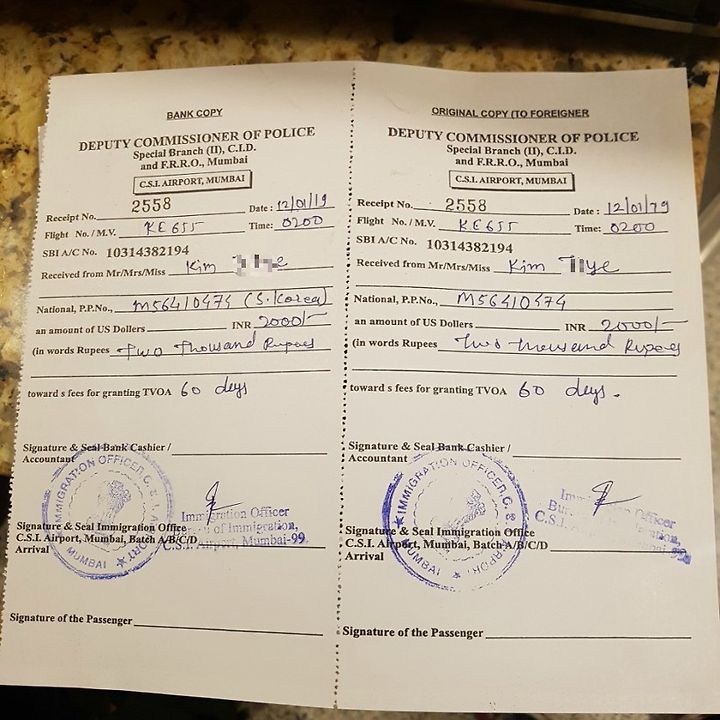 BANK COPY
DEPUTY COMMISSIONER OF POLICE
Special Branch (II), C.I.D.
and F.R.R.O., Mumbai
C.S.I. AIRPORT, MUMBAI
Receipt No. 2558 Date : 12/01/19
Flight No. / M.V. KE655 Time: 0200
SBI A/C No. 10314382194
Received from Mr/Mrs/Miss Kim ye
National, P.P.No., M56410474 (S.Korea)
an amount of US Dollars INR 2000/-
(in words Rupees Two Thousand Rupees
toward s fees for granting TVOA 60 days
Signature & Seal Bank Cashier /
Accountant
IMMIGRATION OFFICER, C.S.I. AIRPORT
MUMBAI
Immigration Officer
of Immigration,
C.S.I. Airport, Mumbai-99
Signature & Seal Immigration Office
C.S.I. Airport, Mumbai, Batch A/B/C/D
Arrival
Signature of the Passenger
ORIGINAL COPY (TO FOREIGNER
DEPUTY COMMISSIONER OF POLICE
Special Branch (II), C.I.D.
and F.R.R.O., Mumbai
C.S.I. AIRPORT, MUMBAI
Receipt No. 2558 Date : 12/01/19
Flight No. / M.V. KE655 Time: 0200
SBI A/C No. 10314382194
Received from Mr/Mrs/Miss Kim ye
National, P.P.No., M56410474
an amount of US Dollars INR 2000/-
(in words Rupees Two thousand Rupees
toward s fees for granting TVOA 60 days.
Signature & Seal Bank Cashier /
Accountant
IMMIGRATION OFFICER, C.S. AIRPORT
MUMBAI
Officer
C.S.I.
Signature & Seal Immigration Office
C.S.I. Airport, Mumbai, Batch A/B/C/D
Arrival
Signature of the Passenger